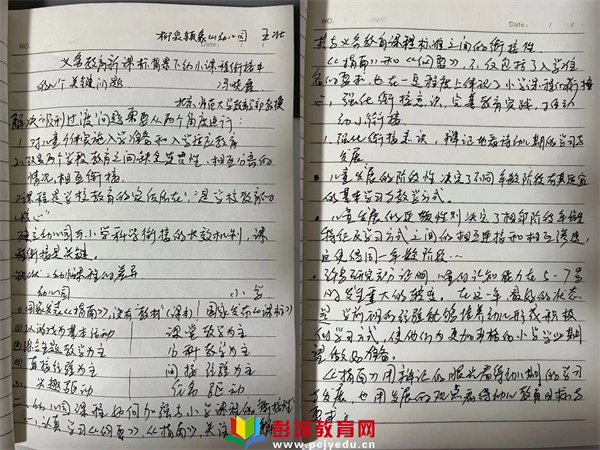 柳泉镇象山幼儿园 王壮
NO.
Date: / /
义务教育新课标背景下幼小课程衔接中
的八个关键问题 冯晓霞
北京师范大学教育学部教授
解决顺利过渡问题需要从两个角度进行:
1. 对儿童个体实施入学准备和入学适应教育
2. 改变两个学段教育之间缺乏连贯性、相互分离的
情况,相互衔接。
课程是学校教育的
建立幼儿园与小学科学衔接的长效机制,课
程衔接是关键。
现状:幼小课程的差异
幼儿园 小学
国家发布《指南》,没有“教材”(课本) 国家发布《课标》
以游戏为基本活动 课堂教学为主
综合主题教学为主 分科教学为主
直接经验为主 间接经验为主
兴趣驱动 任务驱动
一、幼儿园课程如何加强与小学课程的衔接性
(一)认真学习《纲要》、《指南》,关注
NO.
Date: / /
其与义务教育课程标准之间的衔接性
《指南》和《纲要》,不仅包括了入学准
备的要求,也在一定程度上体现了小学课程的衔接
二、强化衔接意识,完善教育实践,推动
幼小衔接
1. 强化衔接意识,辩证地看待幼儿期的学习与
发展
儿童发展的阶段性决定了不同年龄阶段有其适宜
的基本学习与教学方式。
儿童发展的连续性则决定了相邻阶段年龄
特征及学习方式之间的相互连接和相互渗透,
即使同一年龄阶段…
许多研究都证明,儿童的认知能力在5-7岁
间发生重大的转变。在这一年
学前的经验能够培养幼儿形成积极
的学习方式,使他们为更加严格的小学学业期
望做好准备。
《指南》用辩证的眼光看待幼儿期的学习
与发展,也用发展的观点看待幼儿教育目标与
要求。
彭城教育网
www.pcjyedu.cn